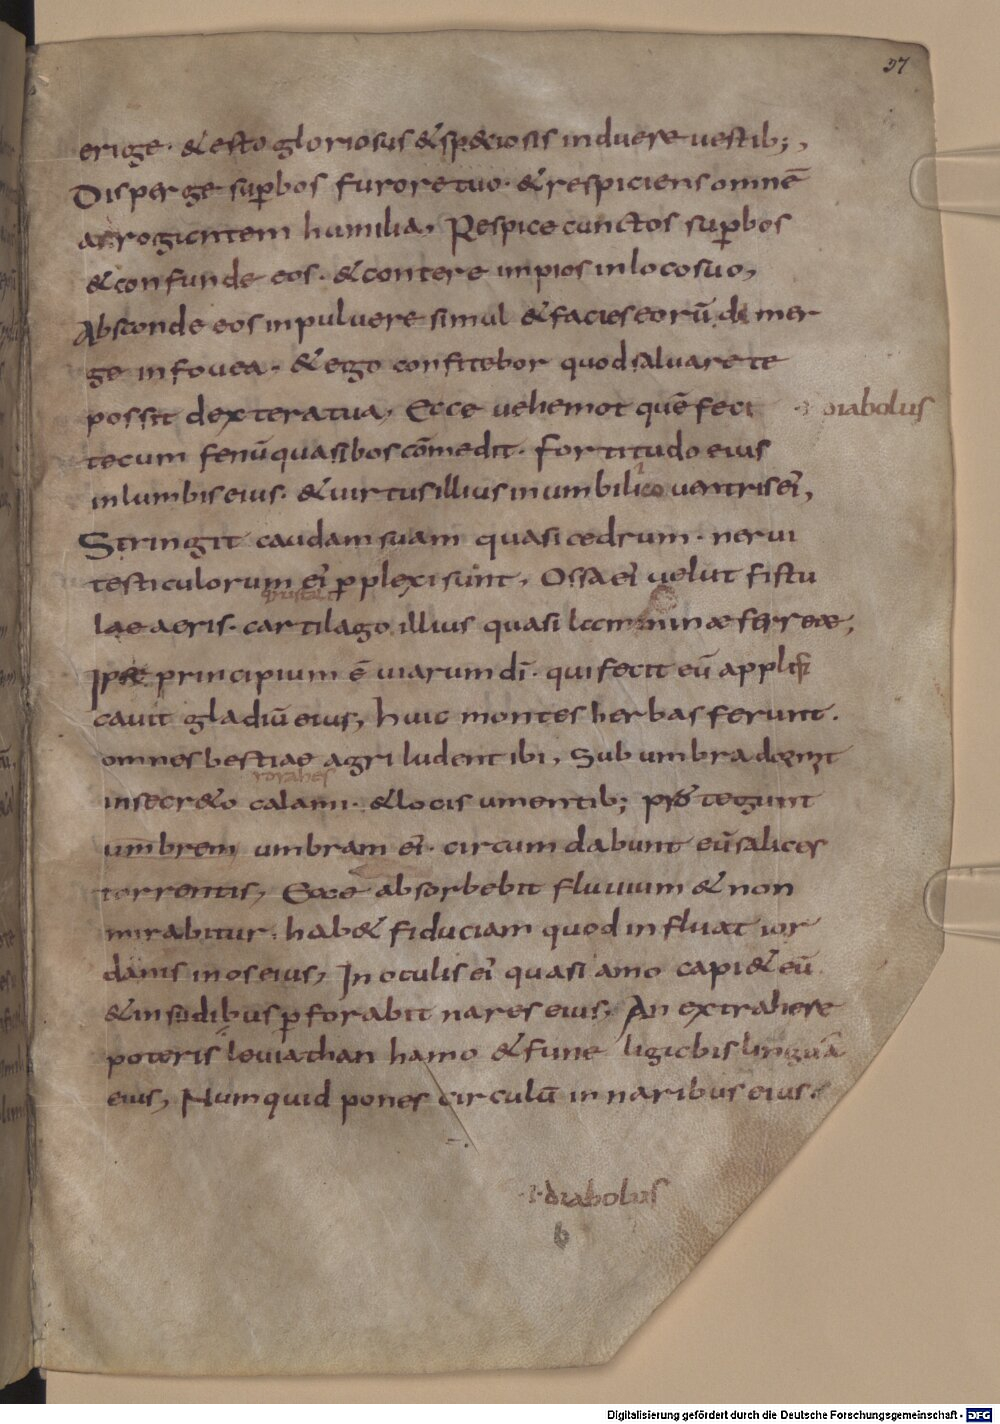 37
erige· & esto gloriosus & sp&iosis induere uestib;,
Disperge supbos furore tuo· & respiciens omnē
arrogantem humilia, Respice cunctos supbos
& confunde eos· & contere impios in loco suo,
Absconde eos in puluere simul & facies eorū demer
ge in fouea· & ego confitebor quod saluare te
possit dextera tua, Ecce uehemot quē feci
·i· diabolus
tecum fenū quasi bos cōmedit· fortitudo eius
in lumbis eius· & uirtus illius in umbilico uentris ei,
Stringit caudam suam quasi cedrum· nerui
testiculorum ei pplexi sunt, Ossa ei uelut fistu
lae aeris· cartilago illius quasi laminae ferreae,
Ipse principium ē uiarum dī· qui fecit eū appli
cauit gladiū eius, huic montes herbas ferunt·
omnes bestiae agri ludent ibi, Sub umbra dormit
roraheſ
in secr&o calami· & locis umentib; pro tegunt
umbrem umbram ei· circumdabunt eū salices
torrentis, Ecce absorbebit fluuium & non
mirabitur· hab& fiduciam quod influat ior
danis in os eius, In oculis ei quasi amo capi& eū
& in sudibus pforabit nares eius, An extrahere
poteris leuiathan hamo & fune ligabis linguā
eius, Numquid pones circulū in naribus eius·
·i· diabolus
b
Digitalisierung gefördert durch die Deutsche Forschungsgemeinschaft - DFG